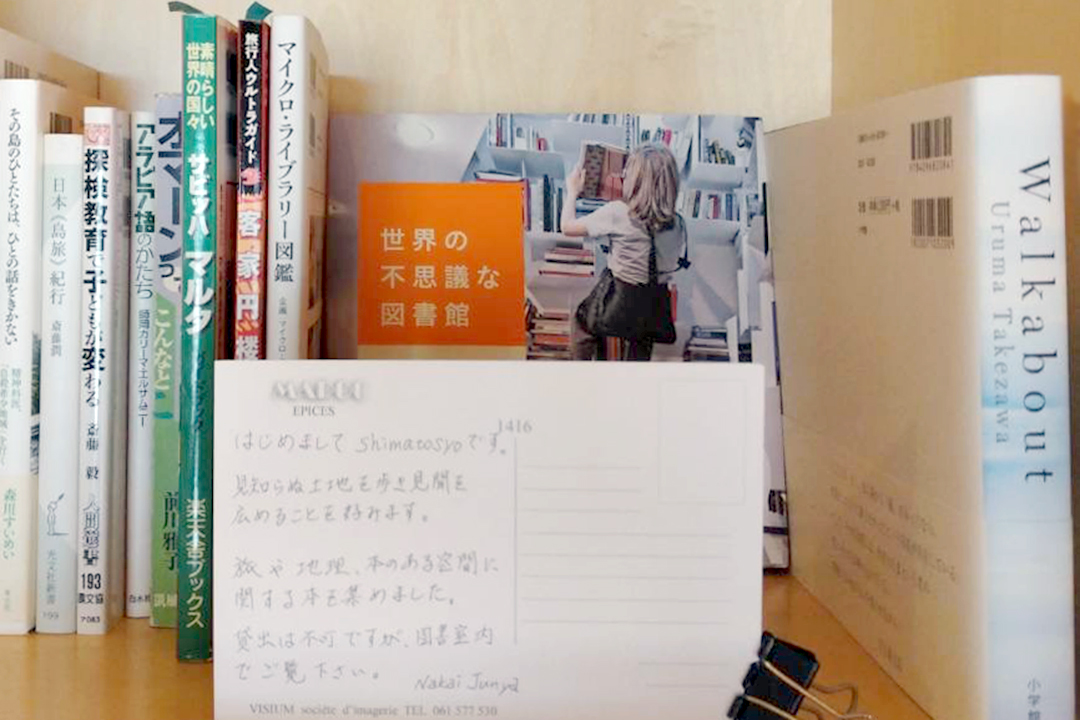 その島のひとたちは、ひとの話をきかない
精神科医、
森川すいめい
日本《島旅》紀行 斎藤潤
光文社新書
199
探検教育で子どもが変わる 斎藤 毅
193
農文協
7083
アラビア語のかたち 師岡カリーマ・エルサムニー
白水社
オマーン
こんなとこ
前川雅子
素晴らしい
世界の国々
サビッハ マルタ
ガイドブック
楽天舎ブックス
旅行人ウルトラガイド
客家円楼
マイクロ・ライブラリー図鑑
企画 マイクロ
世界の
不思議な
図書館
Walkabout
Uruma Takezawa
小学館
EPICES
1416
はじめまして shimatosyoです。
見知らぬ土地を歩き見聞を
広めることを好みます。
旅や地理、本のある空間に
関する本を集めました。
貸出は不可ですが、図書室内
でご覧下さい。
Nakai Junya
VISIUM société d'imagerie TEL 061 577 530